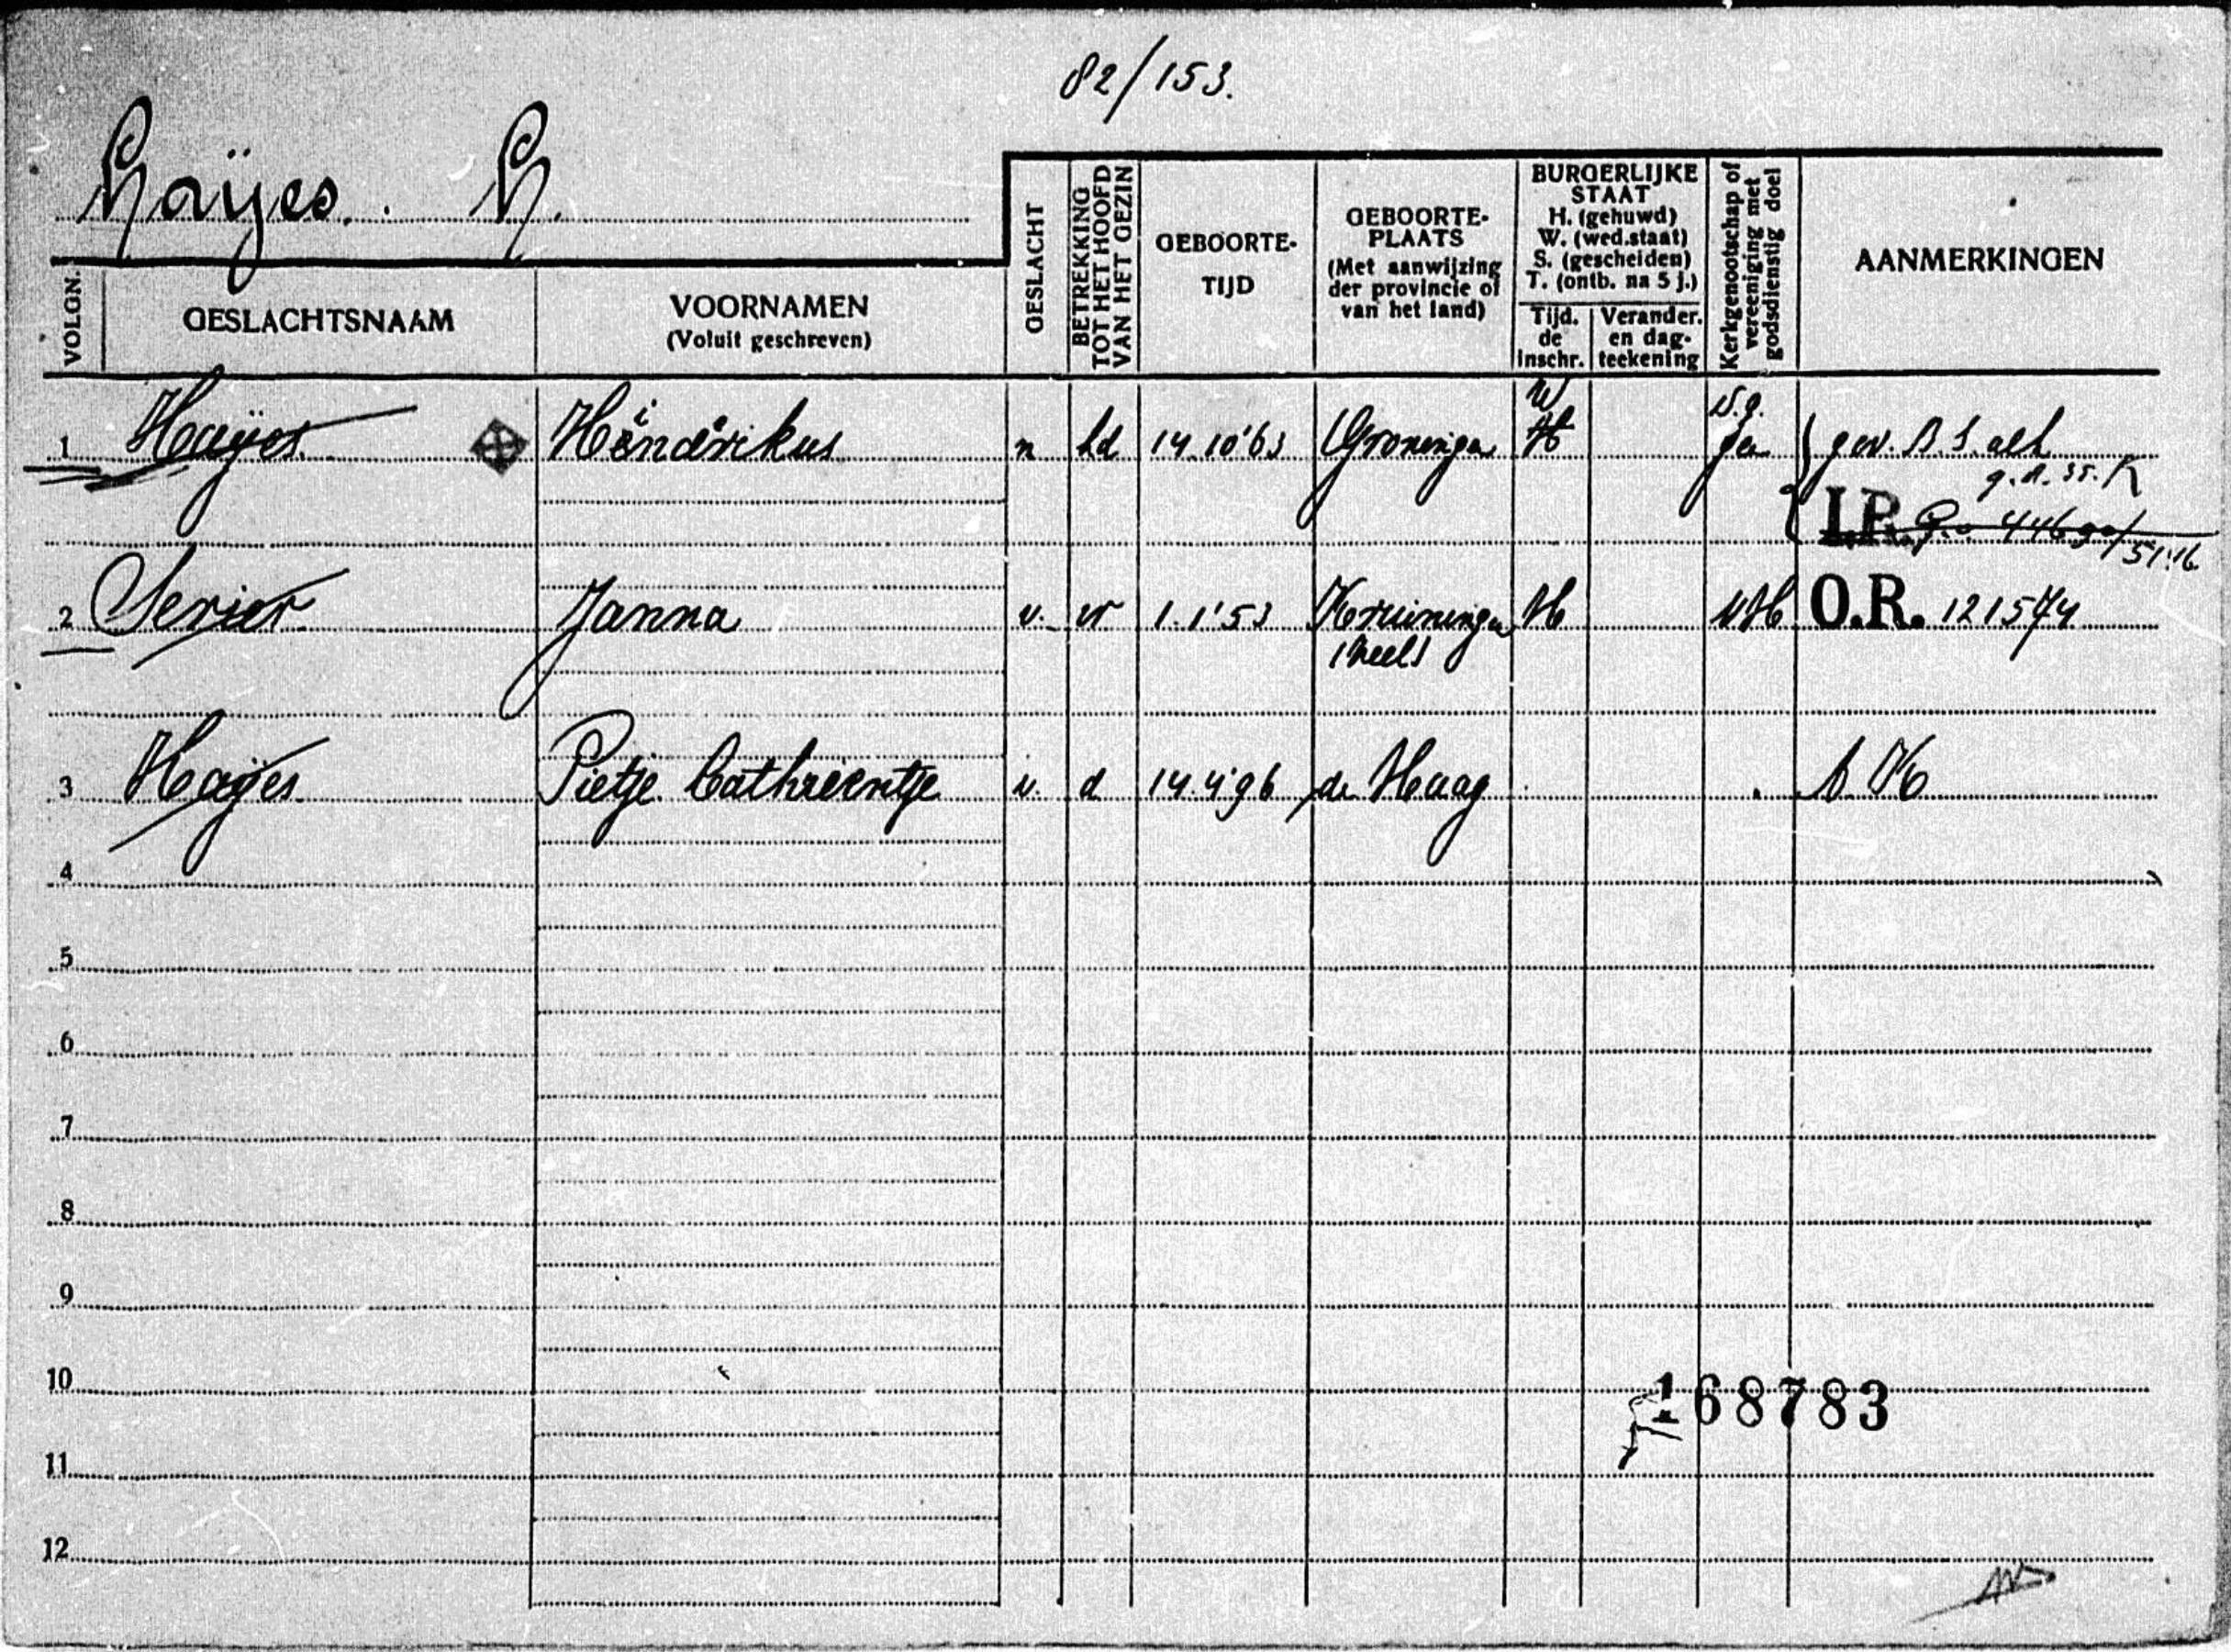 82/153.
Haÿes. H.
VOLGN.
GESLACHTSNAAM
VOORNAMEN
(Voluit geschreven)
GESLACHT
BETREKKING TOT HET HOOFD VAN HET GEZIN
GEBOORTE-
TIJD
GEBOORTE-
PLAATS
(Met aanwijzing
der provincie of
van het land)
BURGERLIJKE
STAAT
H. (gehuwd)
W. (wed.staat)
S. (gescheiden)
T. (ontb. na 5 j.)
Tijd.
de
inschr.
Verander.
en dag-
teekening
Kerkgenootschap of vereeniging met godsdienstig doel
AANMERKINGEN
W N.g.
1 Haÿes Hendrikus m hd 14.10'63 Groningen H gev. B.S. alh
I.R. 44690/51.16
2 Serier Janna v. vr 1.1'53 Kruiningen H NH O.R. 121574
(Zeel)
3 Haÿes Pietje Cathrientje v. d 14.4'96 de Haag
4
5
6
7
8
9
10
168783
11
12